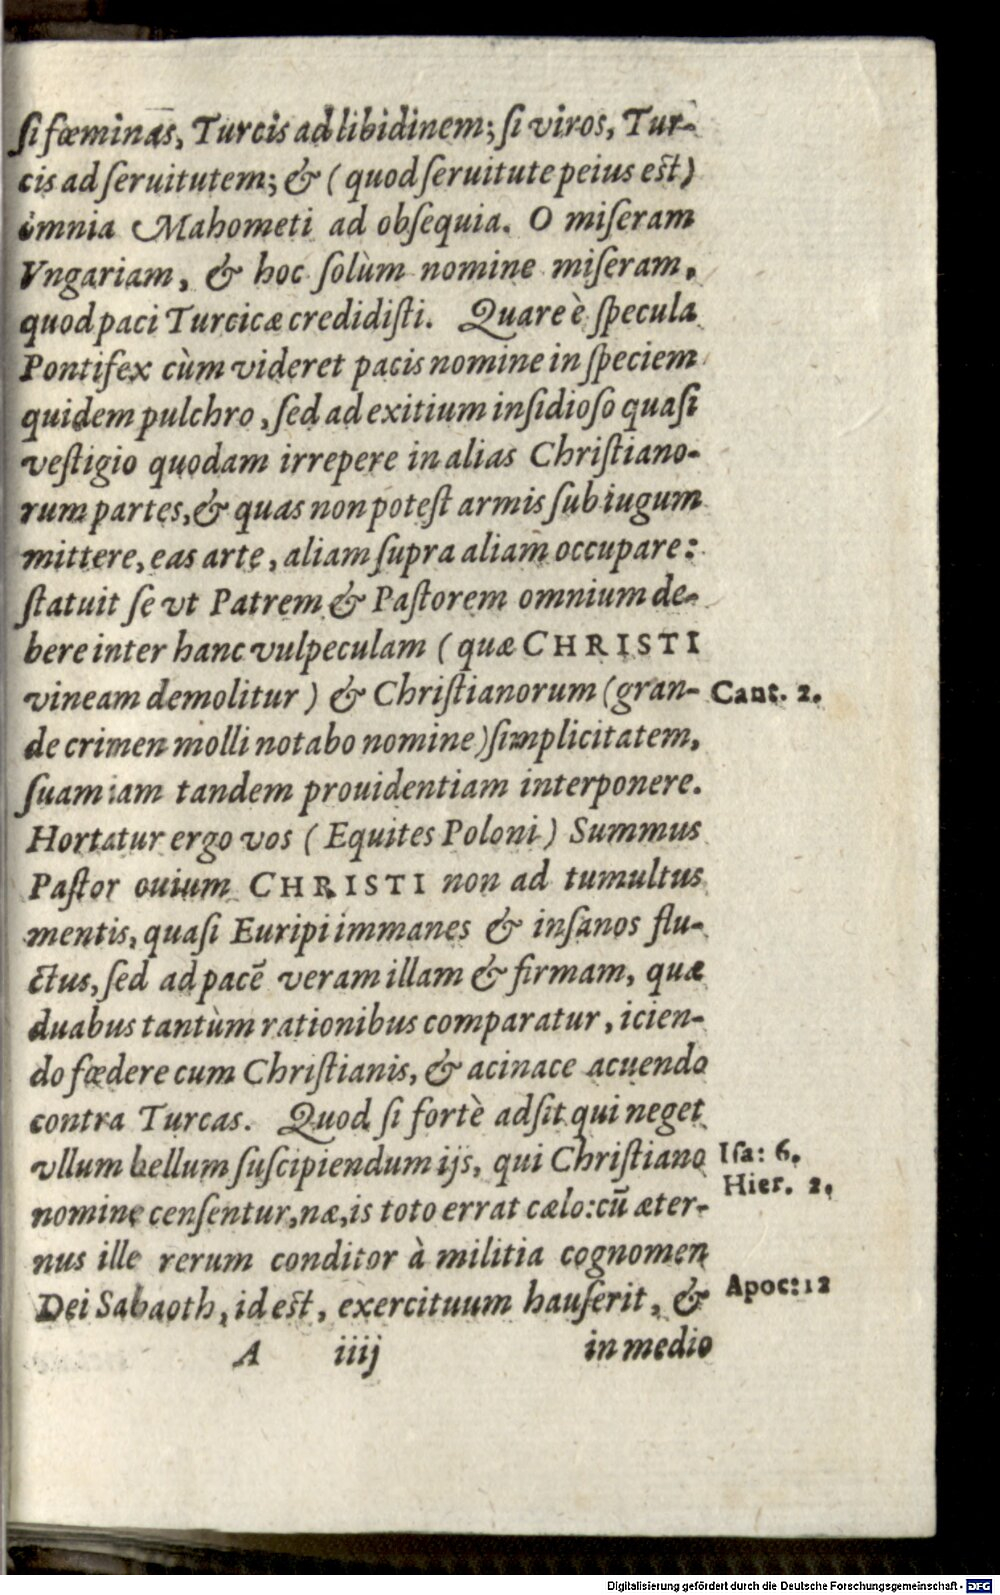 si fœminas, Turcis ad libidinem; si viros, Tur-
cis ad seruitutem; & (quod seruitute peius est)
omnia Mahometi ad obsequia. O miseram
Vngariam, & hoc solùm nomine miseram,
quod paci Turcicæ credidisti. Quare è specula
Pontifex cùm videret pacis nomine in speciem
quidem pulchro, sed ad exitium insidioso quasi
vestigio quodam irrepere in alias Christiano-
rum partes, & quas non potest armis sub iugum
mittere, eas arte, aliam supra aliam occupare:
statuit se vt Patrem & Pastorem omnium de-
bere inter hanc vulpeculam (quæ CHRISTI
vineam demolitur) & Christianorum (gran- Cant. 2.
de crimen molli notabo nomine) simplicitatem,
suam iam tandem prouidentiam interponere.
Hortatur ergo vos (Equites Poloni) Summus
Pastor ouium CHRISTI non ad tumultus
mentis, quasi Euripi immanes & insanos flu-
ctus, sed ad pacē veram illam & firmam, quæ
duabus tantùm rationibus comparatur, icien-
do fœdere cum Christianis, & acinace acuendo
contra Turcas. Quod si fortè adsit qui neget
vllum bellum suscipiendum ijs, qui Christiano Isa: 6.
nomine censentur, næ, is toto errat cælo: cū æter- Hier. 2.
nus ille rerum conditor à militia cognomen
Dei Sabaoth, id est, exercituum hauserit, & Apoc: 12
A iiij in medio
Digitalisierung gefördert durch die Deutsche Forschungsgemeinschaft - DFG